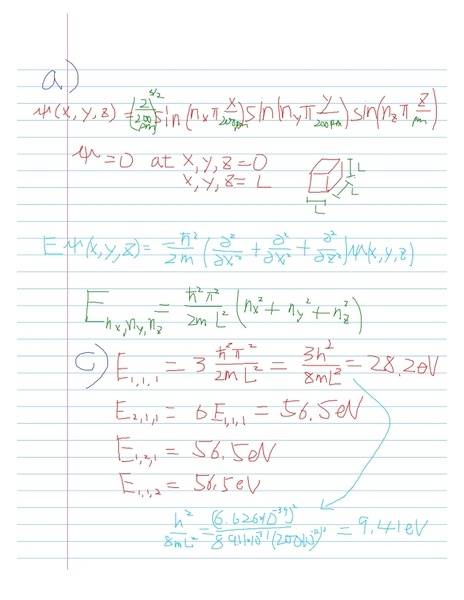 a)
ψ(x, y, z) = (2/200 pm)^3/2 sin(n_x π x/200pm) sin(n_y π y/200pm) sin(n_z π z/pm)
ψ = 0 at x, y, z = 0
x, y, z = L
L L L
Eψ(x, y, z) = -ħ²/2m (∂²/∂x² + ∂²/∂y² + ∂²/∂z²) ψ(x, y, z)
E_nx, ny, nz = ħ²π²/2mL² (n_x² + n_y² + n_z²)
c) E_1,1,1 = 3 ħ²π²/2mL² = 3h²/8mL² = 28.2eV
E_2,1,1 = 6E_1,1,1 = 56.5eV
E_1,2,1 = 56.5eV
E_1,1,2 = 56.5eV
h²/8mL² = = 9.41eV